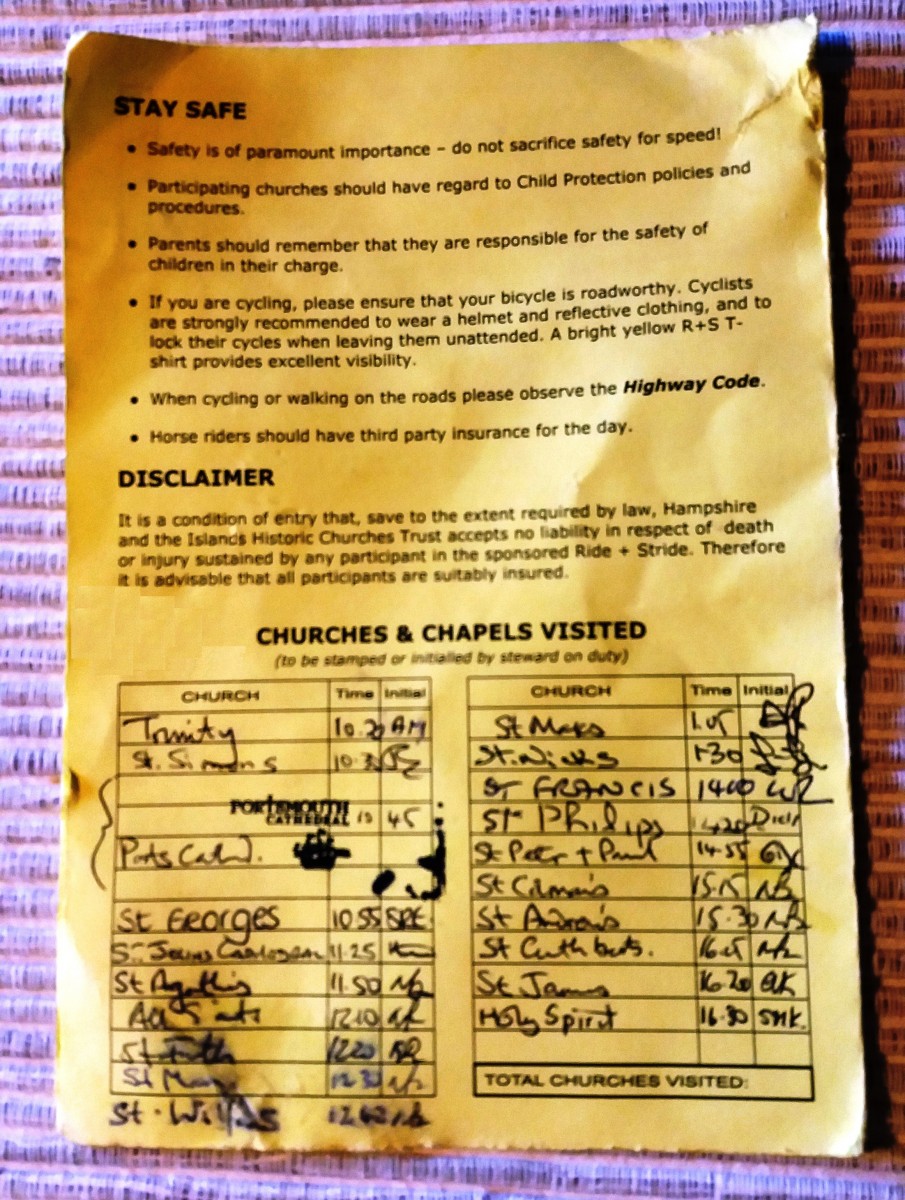 STAY SAFE
• Safety is of paramount importance – do not sacrifice safety for speed!
• Participating churches should have regard to Child Protection policies and
procedures.
• Parents should remember that they are responsible for the safety of
children in their charge.
• If you are cycling, please ensure that your bicycle is roadworthy. Cyclists
are strongly recommended to wear a helmet and reflective clothing, and to
lock their cycles when leaving them unattended. A bright yellow R+S T-
shirt provides excellent visibility.
• When cycling or walking on the roads please observe the Highway Code.
• Horse riders should have third party insurance for the day.
DISCLAIMER
It is a condition of entry that, save to the extent required by law, Hampshire
and the Islands Historic Churches Trust accepts no liability in respect of death
or injury sustained by any participant in the sponsored Ride + Stride. Therefore
it is advisable that all participants are suitably insured.
CHURCHES & CHAPELS VISITED
(to be stamped or initialled by steward on duty)
CHURCH Time Initial
Trinity 10.20 AM
St. Simons
PORTSMOUTH
CATHEDRAL 10 45
Ports Cathd.
St Georges 10 55 SRE
St Johns Cathedral 11.25
St Agathas 11.50
All Saints 1210
St Faith 1220
St Mary 12.30
St. Wilfs
CHURCH Time Initial
St Marks 1.05
St. Nicks 1.30
ST FRANCIS 1400
St Philips 1420
St Peter + Paul 14.55
St Colman's 15.15
St Andrew's 15.30
St Cuthberts.
St James 16.20
Holy Spirit 16.30 SMK.
TOTAL CHURCHES VISITED: